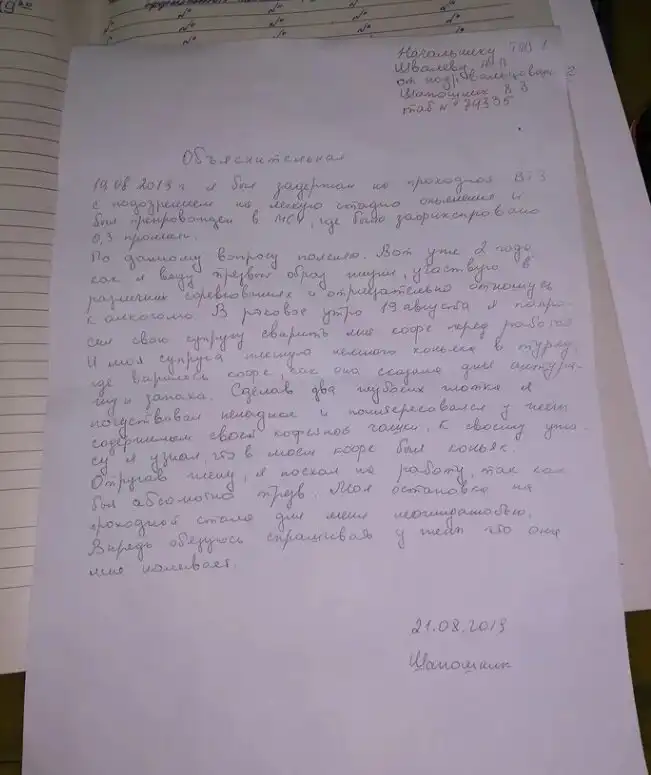 № № № №
№ № № №
Начальнику ТЭЦ 1
Швалеву
от
Шапошник В З
таб № 74335
Объяснительная
19 08 2013 г я был задержан на проходной ВТЗ
с подозрением на легкую стадию опьянения и
был препровожден в МСЧ, где было зафиксировано
0,3 промилле.
По данному вопросу поясняю. Вот уже 2 года,
как я веду трезвый образ жизни, участвую в
различных соревнованиях и отрицательно отношусь
к алкоголю. В утро 19 августа я попро-
сил свою супругу сварить мне кофе перед работой
И моя супруга плеснула немного коньяка в турку,
где варилось кофе, как она сказала для антура-
жу и запаха. Сделав два глубоких глотка я
почувствовал неладное и поинтересовался у жены
содержимым своей кофейной чашки. К своему ужа-
су я узнал, что в моем кофе был коньяк.
Отругав жену, я поехал на работу, так как
был абсолютно трезв. Моя остановка на
проходной стала для меня неожиданностью.
Впредь обязуюсь спрашивать у жены что она
мне наливает.
21.08.2013
Шапошник